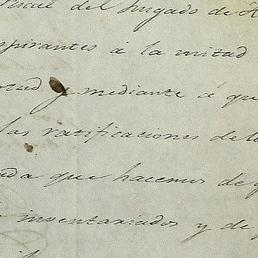 del Jusgado de
aspirantes á la mitad
y mediante á que
las ratificaciones de
que hacemos de
inventariados y de